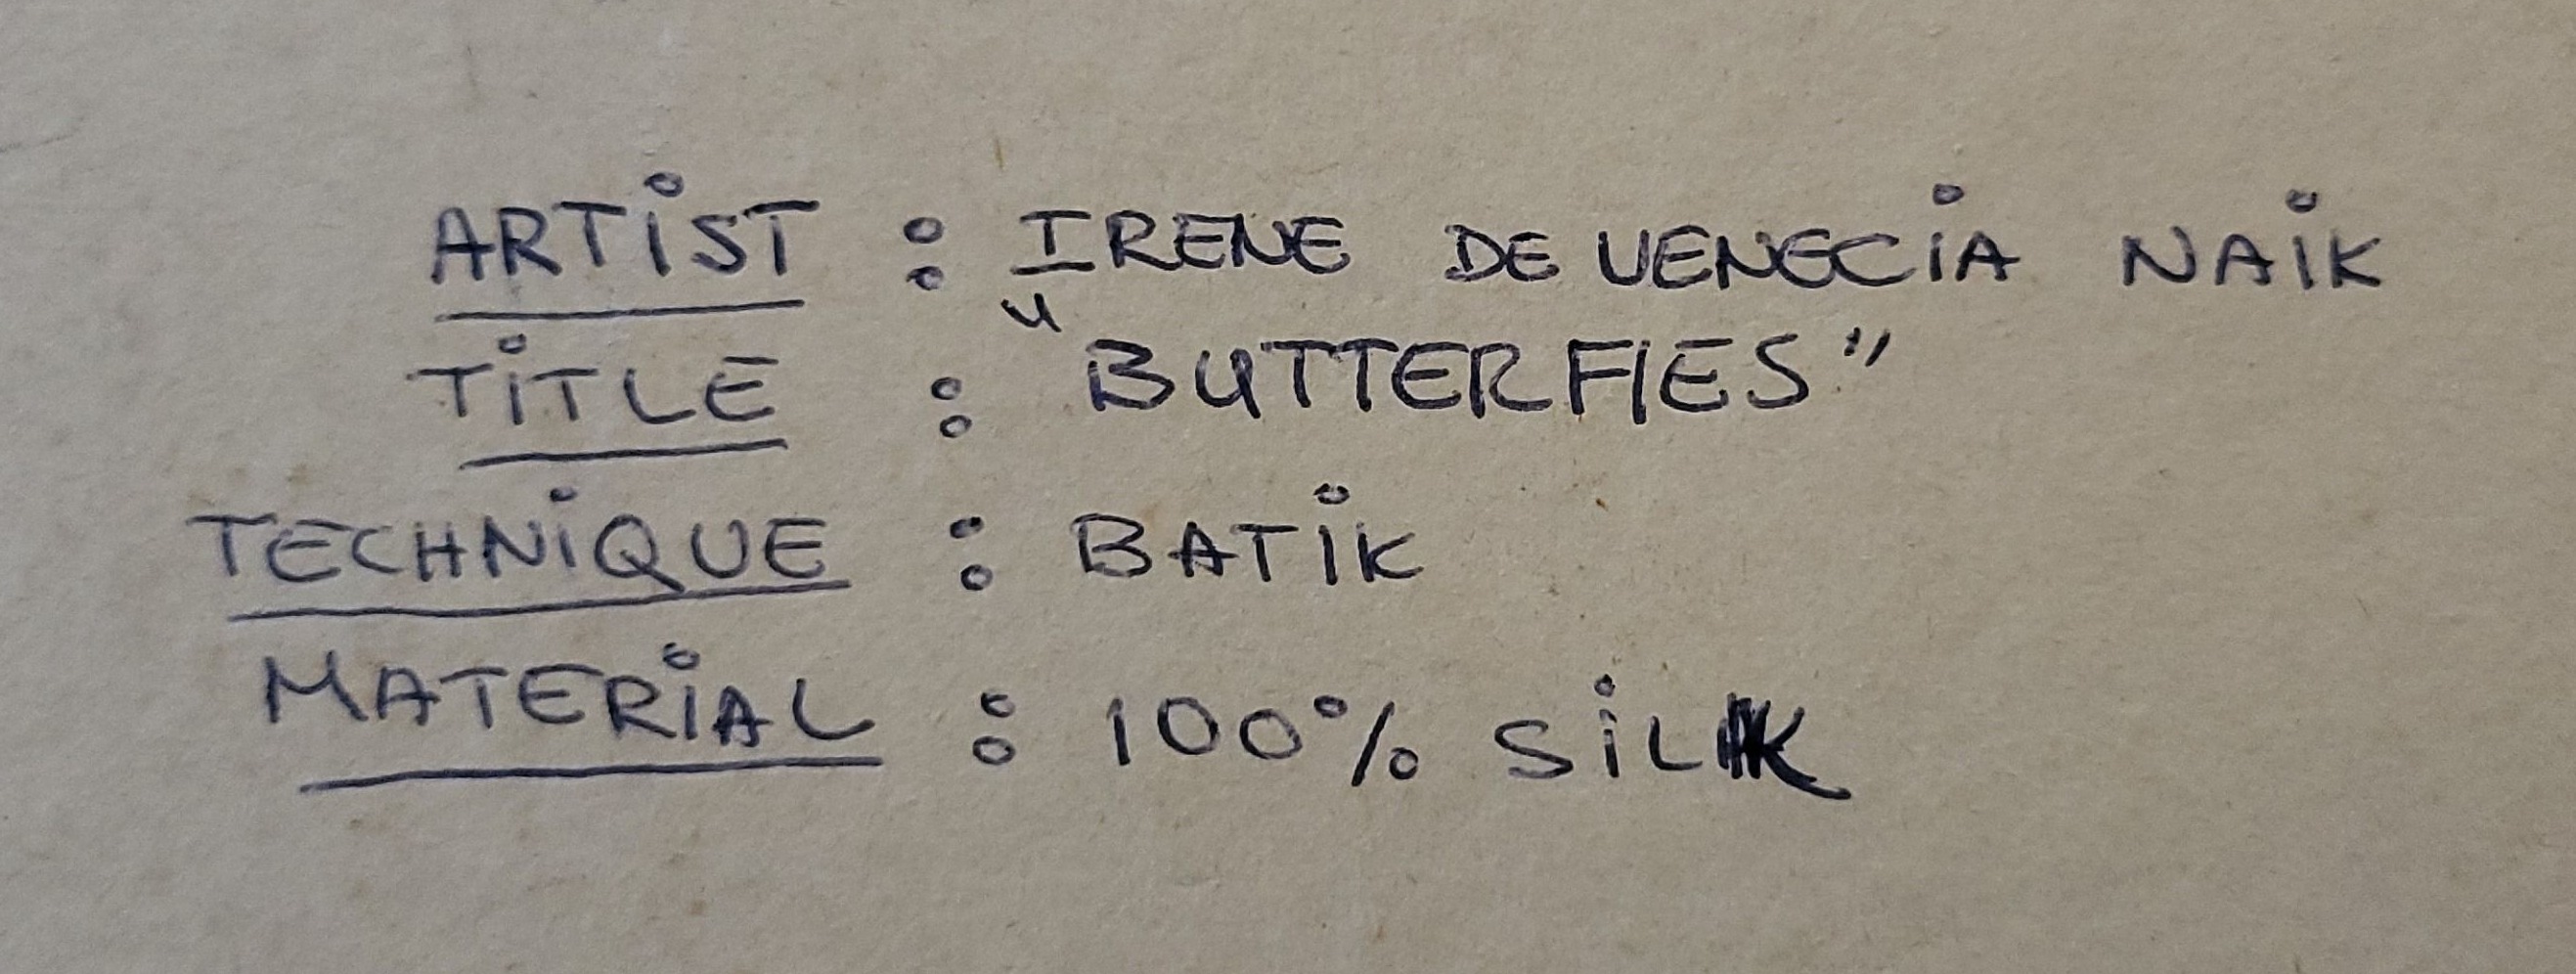 ARTiST : IRENE DE VENECiA NAiK
TiTLE : "BUTTERFIES"
TECHNiQUE : BATiK
MATERiAL : 100% SiLK